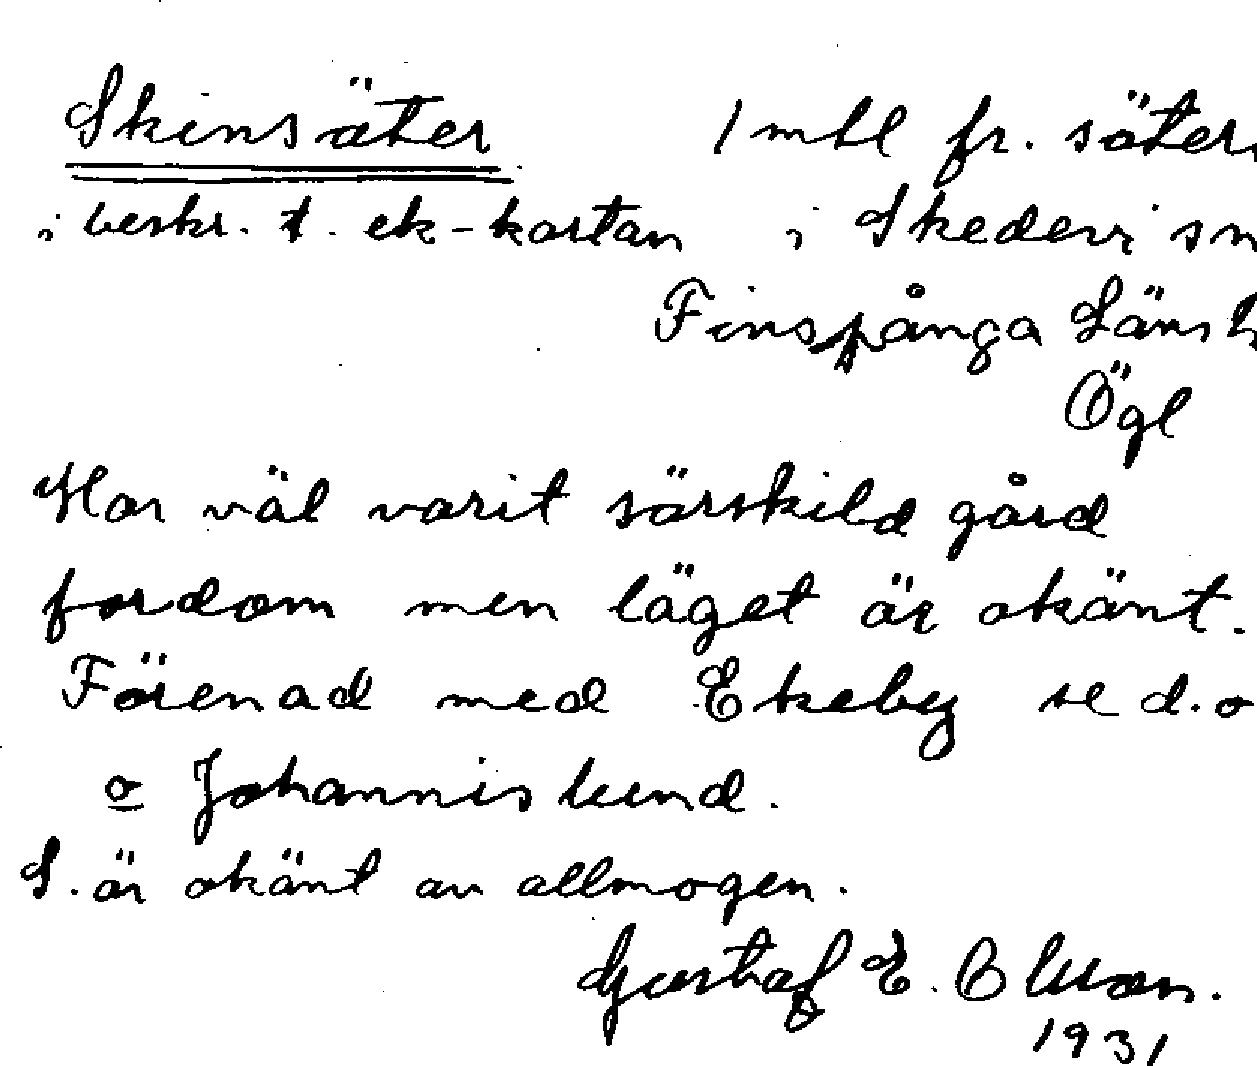 Skinsäter 1 mtl fr. säter
i beskr. t. ek-kartan i Skedevi sn
Finspånga Läns h
Ögl
Har väl varit särskild gård
fordom men läget är okänt.
Förenad med Ekeby se d.o
o Johannislund.
S. är okänt av allmogen.
Gustaf E. Olsson.
1931